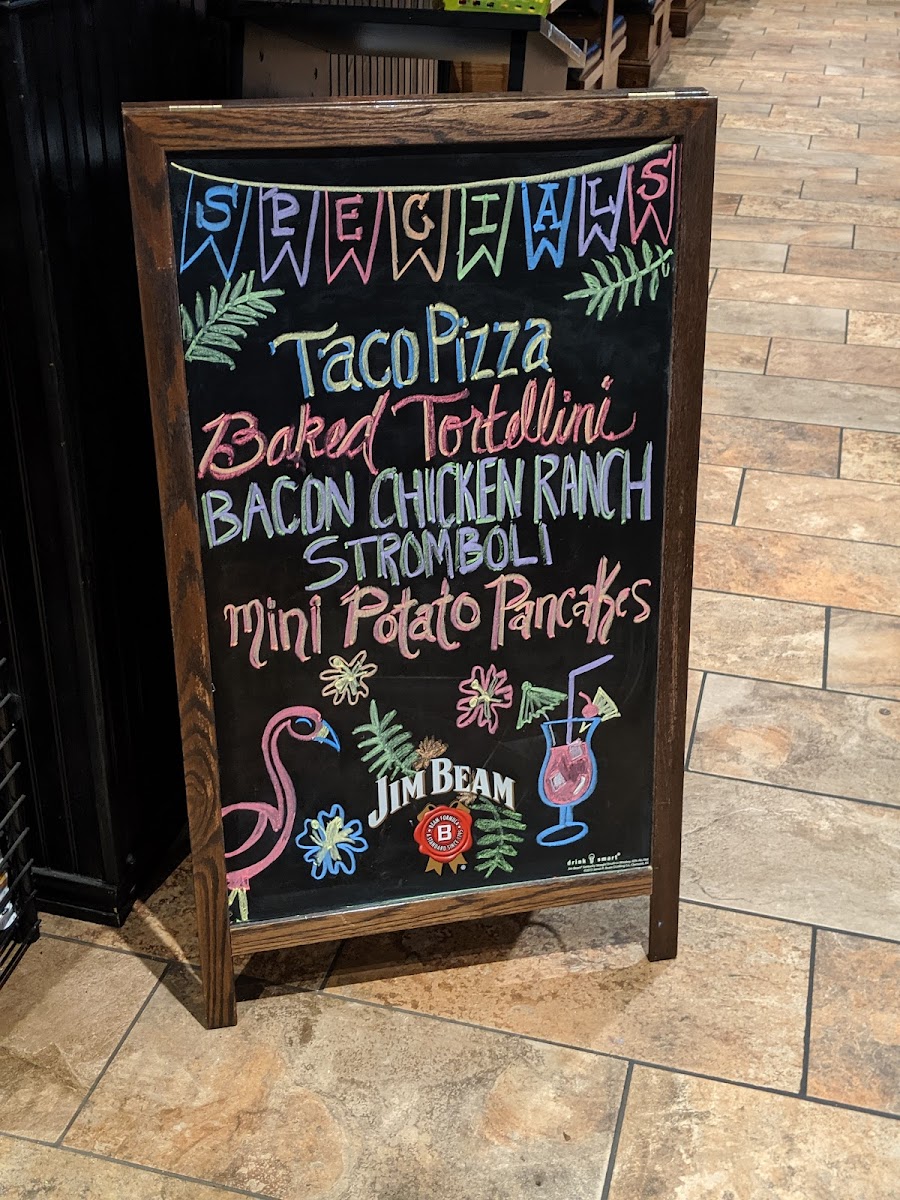 SPECIALS
Taco Pizza
Baked Tortellini
BACON CHICKEN RANCH
STROMBOLI
Mini Potato Pancakes
JIM BEAM
BEAM FORMULA
B
STANDARD SINCE 1795
drink smart